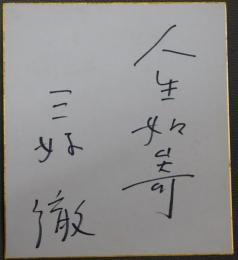 人生如寄
三好徹